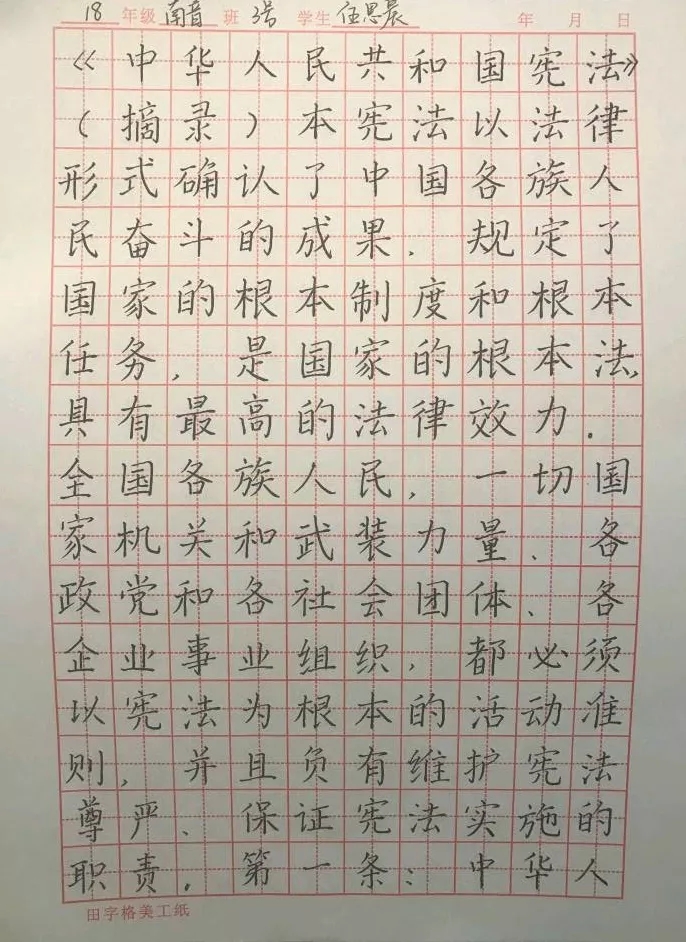 18年级 南音 班 3号 学生 任思晨 年 月 日
《中华人民共和国宪法》
(摘录)本宪法以法律
形式确认了中国各族人
民奋斗的成果.规定了
国家的根本制度和根本
任务,是国家的根本法,
具有最高的法律效力.
全国各族人民,一切国
家机关和武装力量、各
政党和各社会团体、各
企业事业组织,都必须
以宪法为根本的活动准
则,并且负有维护宪法
尊严、保证宪法实施的
职责.第一条:中华人
田字格美工纸